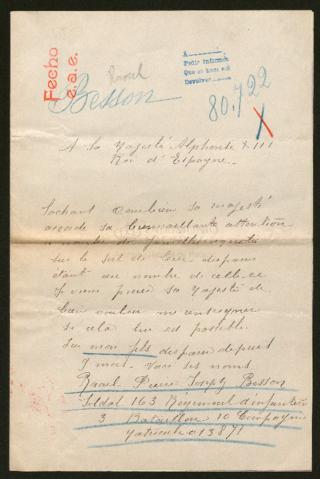 Fecho
e.a.e.
Raoul
Besson
A
Pedir informes
Que se haga
Devolver
80.722
X
A Sa Majesté Alphonse XIII
Roi d'Espagne
Sachant combien sa majesté
accorde sa bienveillante attention
sur le sort de disparus
étant au nombre de celle-ce
Je viens prier Sa Majesté de
bien vouloir me renseigner
si cela lui est possible
Sur mon fils disparu depuis
7 mois. Voici ses noms
Raoul Pierre Joseph Besson
Soldat 163 Régiment d'infanterie
3 Bataillon 10 Compagnie
Matricule 013871